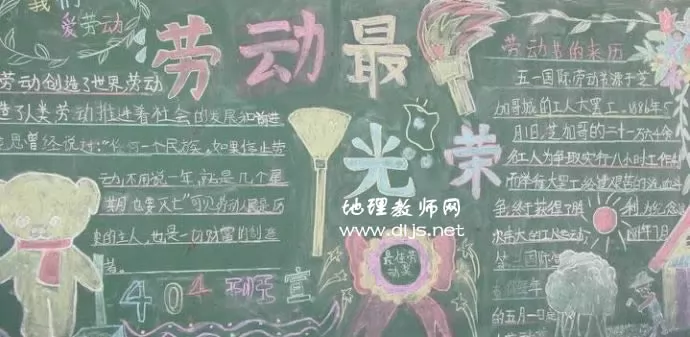 我们
爱劳动
劳动最
光荣
劳动创造了世界,劳动
造了人类劳动推进着社会的发展和前进
思曾经说过:"任何一个民族,如果停止劳
动,不用说一年,就是几个星
期,也要灭亡"可见劳动人民是历
史的主人,也是一切财富的创造
者。
404班宣
最佳劳
动奖
劳动节的来历
五一国际劳动节源于芝
加哥城的工人大罢工。1886年5
月1日,芝加哥的二十一万六千余
名工人为争取实行八小时工作制
而举行大罢工,经过艰苦的流血
争,终于获得了胜利。为纪念这
次伟大的工人运动,1889年7月
第二国际
的五月一日定
地理教师网
www.dljs.net